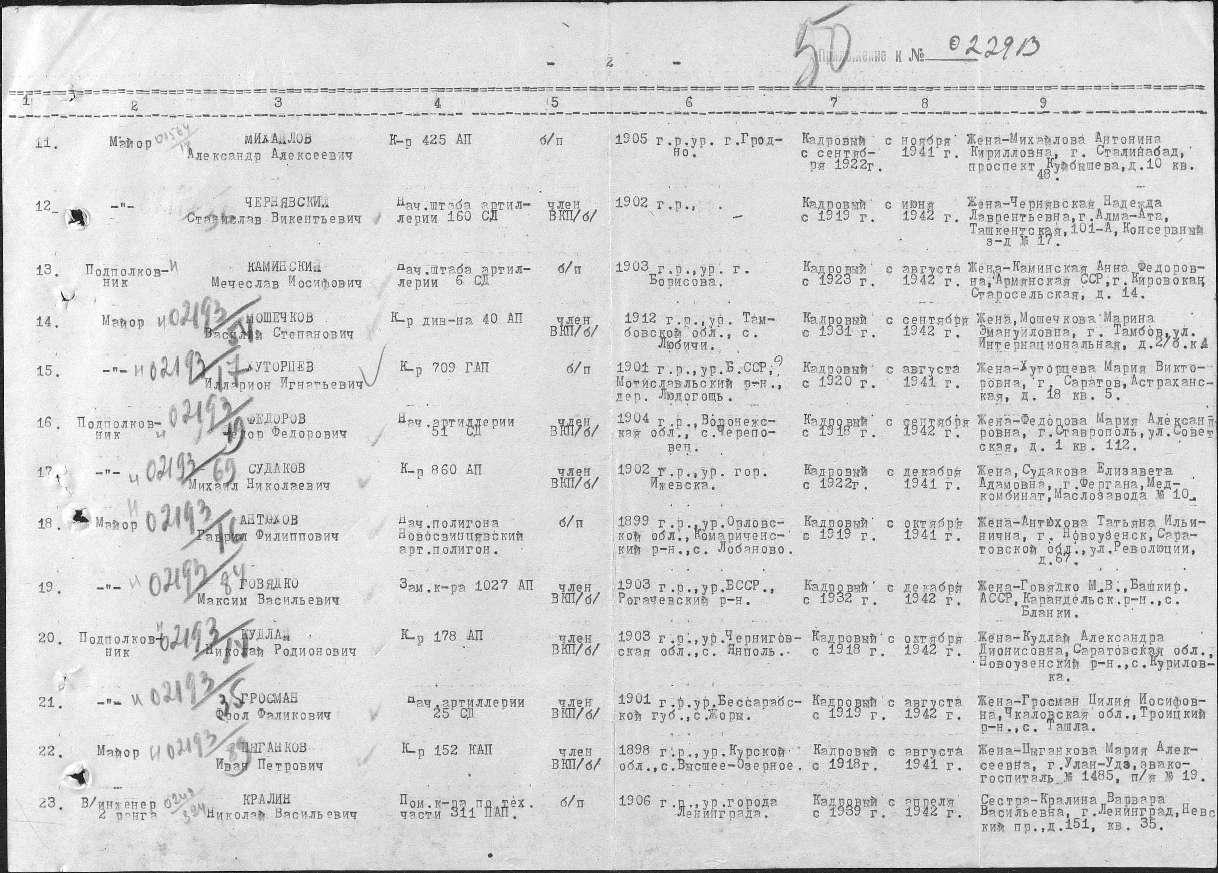 50
Приложение к № 022913
- 2 -
1 2 3 4 5 6 7 8 9
11. Майор МИХАЙЛОВ К-р 425 АП б/п 1905 г.р.ур. г.Грод- Кадровый с ноября Жена-Михайлова Антонина
Александр Алексеевич но. с сентяб- 1941 г. Кирилловна, г. Сталинабад,
ря 1922г. проспект Куйбышева,д.10 кв.
48.
12. -"- ЧЕРНЯВСКИЙ Нач.штаба артил- член 1902 г.р., Кадровый с июня Жена-Чернявская Надежда
Станислав Викентьевич лерии 160 СД ВКП/б/ с 1919 г. 1942 г. Лаврентьевна,г.Алма-Ата,
Ташкентская,101-А, Консервный
з-д № 17.
13. Подполков- КАМИНСКИЙ Нач.штаба артил- б/п 1903 г.р.,ур. г. Кадровый с августа Жена-Каминская Анна Федоров-
ник Мечеслав Иосифович лерии 6 СД Борисова. с 1923 г. 1942 г. на,Армянская ССР,г.Кировокан,
Старосельская, д. 14.
14. Майор и 02193/ МОШЕЧКОВ К-р див-на 40 АП член 1912 г.р.,ур. Там- Кадровый с сентября Жена,Мошечкова Марина
Василий Степанович ВКП/б/ бовской обл., с. с 1931 г. 1942 г. Эмануиловна, г. Тамбов,ул.
Любичи. Интернациональная, д.2/б.к.
15. -"- и 02193/17 ХУТОРЦЕВ К-р 709 ГАП б/п 1901 г.р.,ур.Б.ССР, Кадровый с августа Жена-Хуторцева Мария Викто-
Илларион Игнатьевич Мотиславльский р-н., с 1920 г. 1941 г. ровна, г. Саратов,Астрахан-
дер. Людогощь. кая, д. 18 кв. 5.
16. Подполков- 02193/ ФЕДОРОВ Нач.артиллерии член 1904 г.р., Воронежс- Кадровый с сентября Жена-Федорова Мария Алексан
ник и Федор Федорович 51 СД ВКП/б/ кая обл., с.Черепо- с 1918 г. 1942 г. ровна, г.Ставрополь,ул.Совет
вен. ская, д. 1 кв. 112.
17. -"- и 02193/69 СУДАКОВ К-р 860 АП член 1902 г.р.,ур. гор. Кадровый с декабря Жена,Судакова Елизавета
Михаил Николаевич ВКП/б/ Ижевска. с 1922г. 1941 г. Адамовна, г.Фергана,Мед-
комбинат,Маслозавода № 10.
18. Майор и 02193/ АНТЮХОВ Нач.полигона б/п 1899 г.р.,ур.Орловс- Кадровый с октября Жена-Антюхова Татьяна Ильи-
Гаврил Филиппович Новосвинцявский кой обл.,Комариченс- с 1919 г. 1941 г. нична, г. Новоузенск,Сара-
арт.полигон. кий р-н.,с. Лобаново. товской обл.,ул.Революции,
д.67.
19. -"- и 02193/84 ГОВЯДКО Зам.к-ра 1027 АП член 1903 г.р.,ур.БССР., Кадровый с декабря Жена-Говядко М.В.,Башкир.
Максим Васильевич ВКП/б/ Рогачевский р-н. с 1932 г. 1942 г. АССР,Карандельск.р-н.,с.
Бланки.
20. Подполков- и 02193/ КУДЛАЙ К-р 178 АП член 1903 г.р.,ур.Чернигов- Кадровый с октября Жена-Кудлай Александра
ник Николай Родионович ВКП/б/ ская обл.,с. Янполь. с 1918 г. 1942 г. Дионисовна,Саратовская обл.,
Новоузенский р-н.,с.Курилов-
ка.
21. -"- и 02193/35 ГРОСМАН Нач.артиллерии член 1901 г.р.ур.Бессарабс- Кадровый с августа Жена-Гросман Цилия Иосифов-
Фрол Фаликович 25 СД ВКП/б/ кой губ.,с.Жоры. с 1919 г. 1942 г. на,Чкаловская обл.,Троицкий
р-н.,с. Ташла.
22. Майор и 02193/89 ЦЫГАНКОВ К-р 152 КАП член 1898 г.р.,ур.Курской Кадровый с августа Жена-Цыганкова Мария Алек-
Иван Петрович ВКП/б/ обл.,с.Высшее-Озерное. с 1918г. 1941 г. сеевна, г.Улан-Удэ,эвако-
госпиталь № 1485, п/я № 19.
23. В/инженер КРАЛИН Пом.к-ра по тех. б/п 1906 г.р.,ур.города Кадровый с апреля Сестра-Кралина Варвара
2 ранга Николай Васильевич части 311 ПАП. Ленинграда. с 1939 г. 1942 г. Васильевна, г.Ленинград,Невс
кий пр.,д.151, кв. 35.